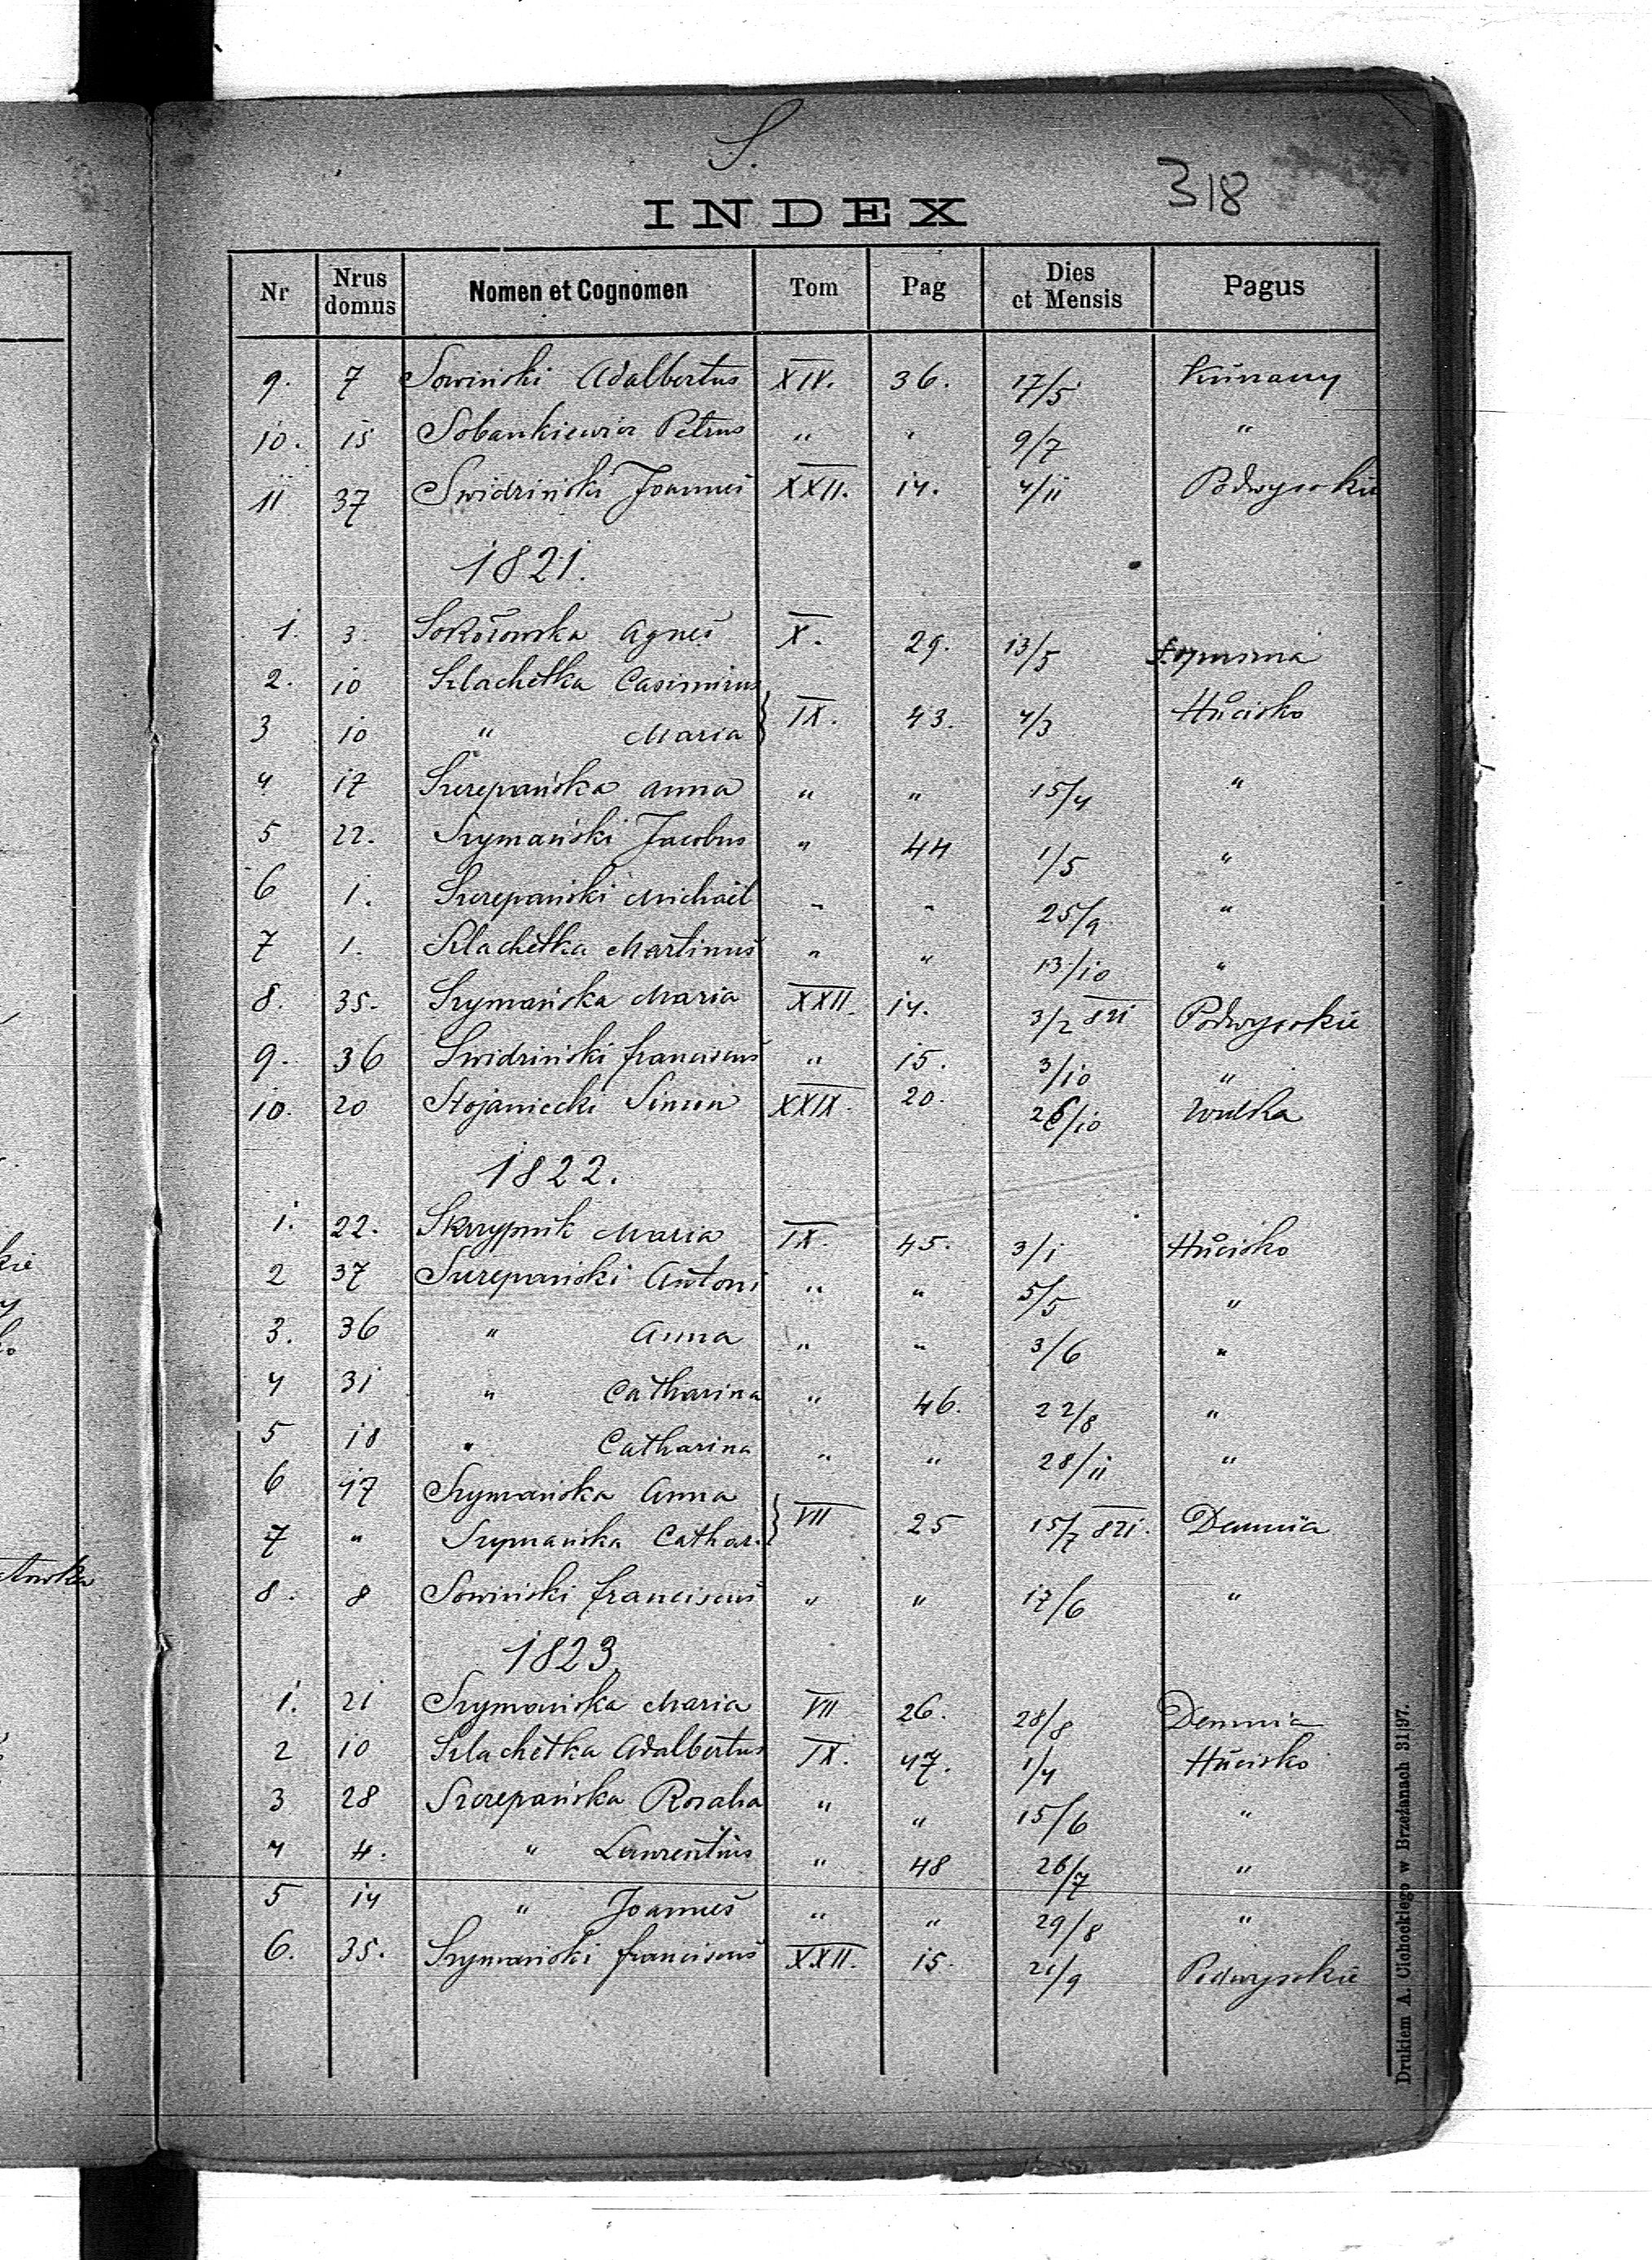 S.
318
INDEX
Nr | Nrus domus | Nomen et Cognomen | Tom | Pag | Dies et Mensis | Pagus
9. 7 Sowiński Adalbertus XIV. 36. 17/5 Kurzany
10. 15 Sobankiewicz Petrus " " 9/7 "
11 37 Swidziński Joannes XXII. 14. 4/11 Podwysokie
1821.
1. 3. Sokołowska Agnes X. 29. 13/5
2. 10 Szlachetka Casimirus
3 10 " Maria } IX. 43. 4/3 Hucisko
4 17 Szczepańska Anna " " 15/4 "
5 22. Szymański Jacobus " 44 1/5 "
6 1. Szczepański Michael " " 25/9 "
7 1. Szlachetka Martinus " " 13/10 "
8. 35. Szymańska Maria XXII. 14. 3/2 821 Podwysokie
9. 36 Swidziński Franciscus " 15. 3/10 "
10. 20 Stojaniecki Simon XXIX. 20. 26/10 Wulka
1822.
1. 22. Skrzypnik Maria IX. 45. 3/1 Hucisko
2 37 Szczepański Antoni " " 5/5 "
3. 36 " Anna " " 3/6 "
4 31 " Catharina " 46. 22/8 "
5 18 " Catharina " " 28/11 "
6 17 Szymańska Anna
7 " Szymańska Cathar. } VII 25 15/7 821. Demnia
8. 8 Sowiński Franciscus " " 17/6 "
1823.
1. 21 Szymańska Maria VII 26. 28/8 Demnia
2 10 Szlachetka Adalbertus IX. 47. 1/4 Hucisko
3 28 Szczepańska Rosalia " " 15/6 "
4 4. " Laurentius " 48 26/7 "
5 14 " Joannes " " 29/8 "
6. 35. Szymański Franciscus XXII. 15. 21/9 Podwysokie
Drukiem A. Cichockiego w Brzeżanach 31|97.